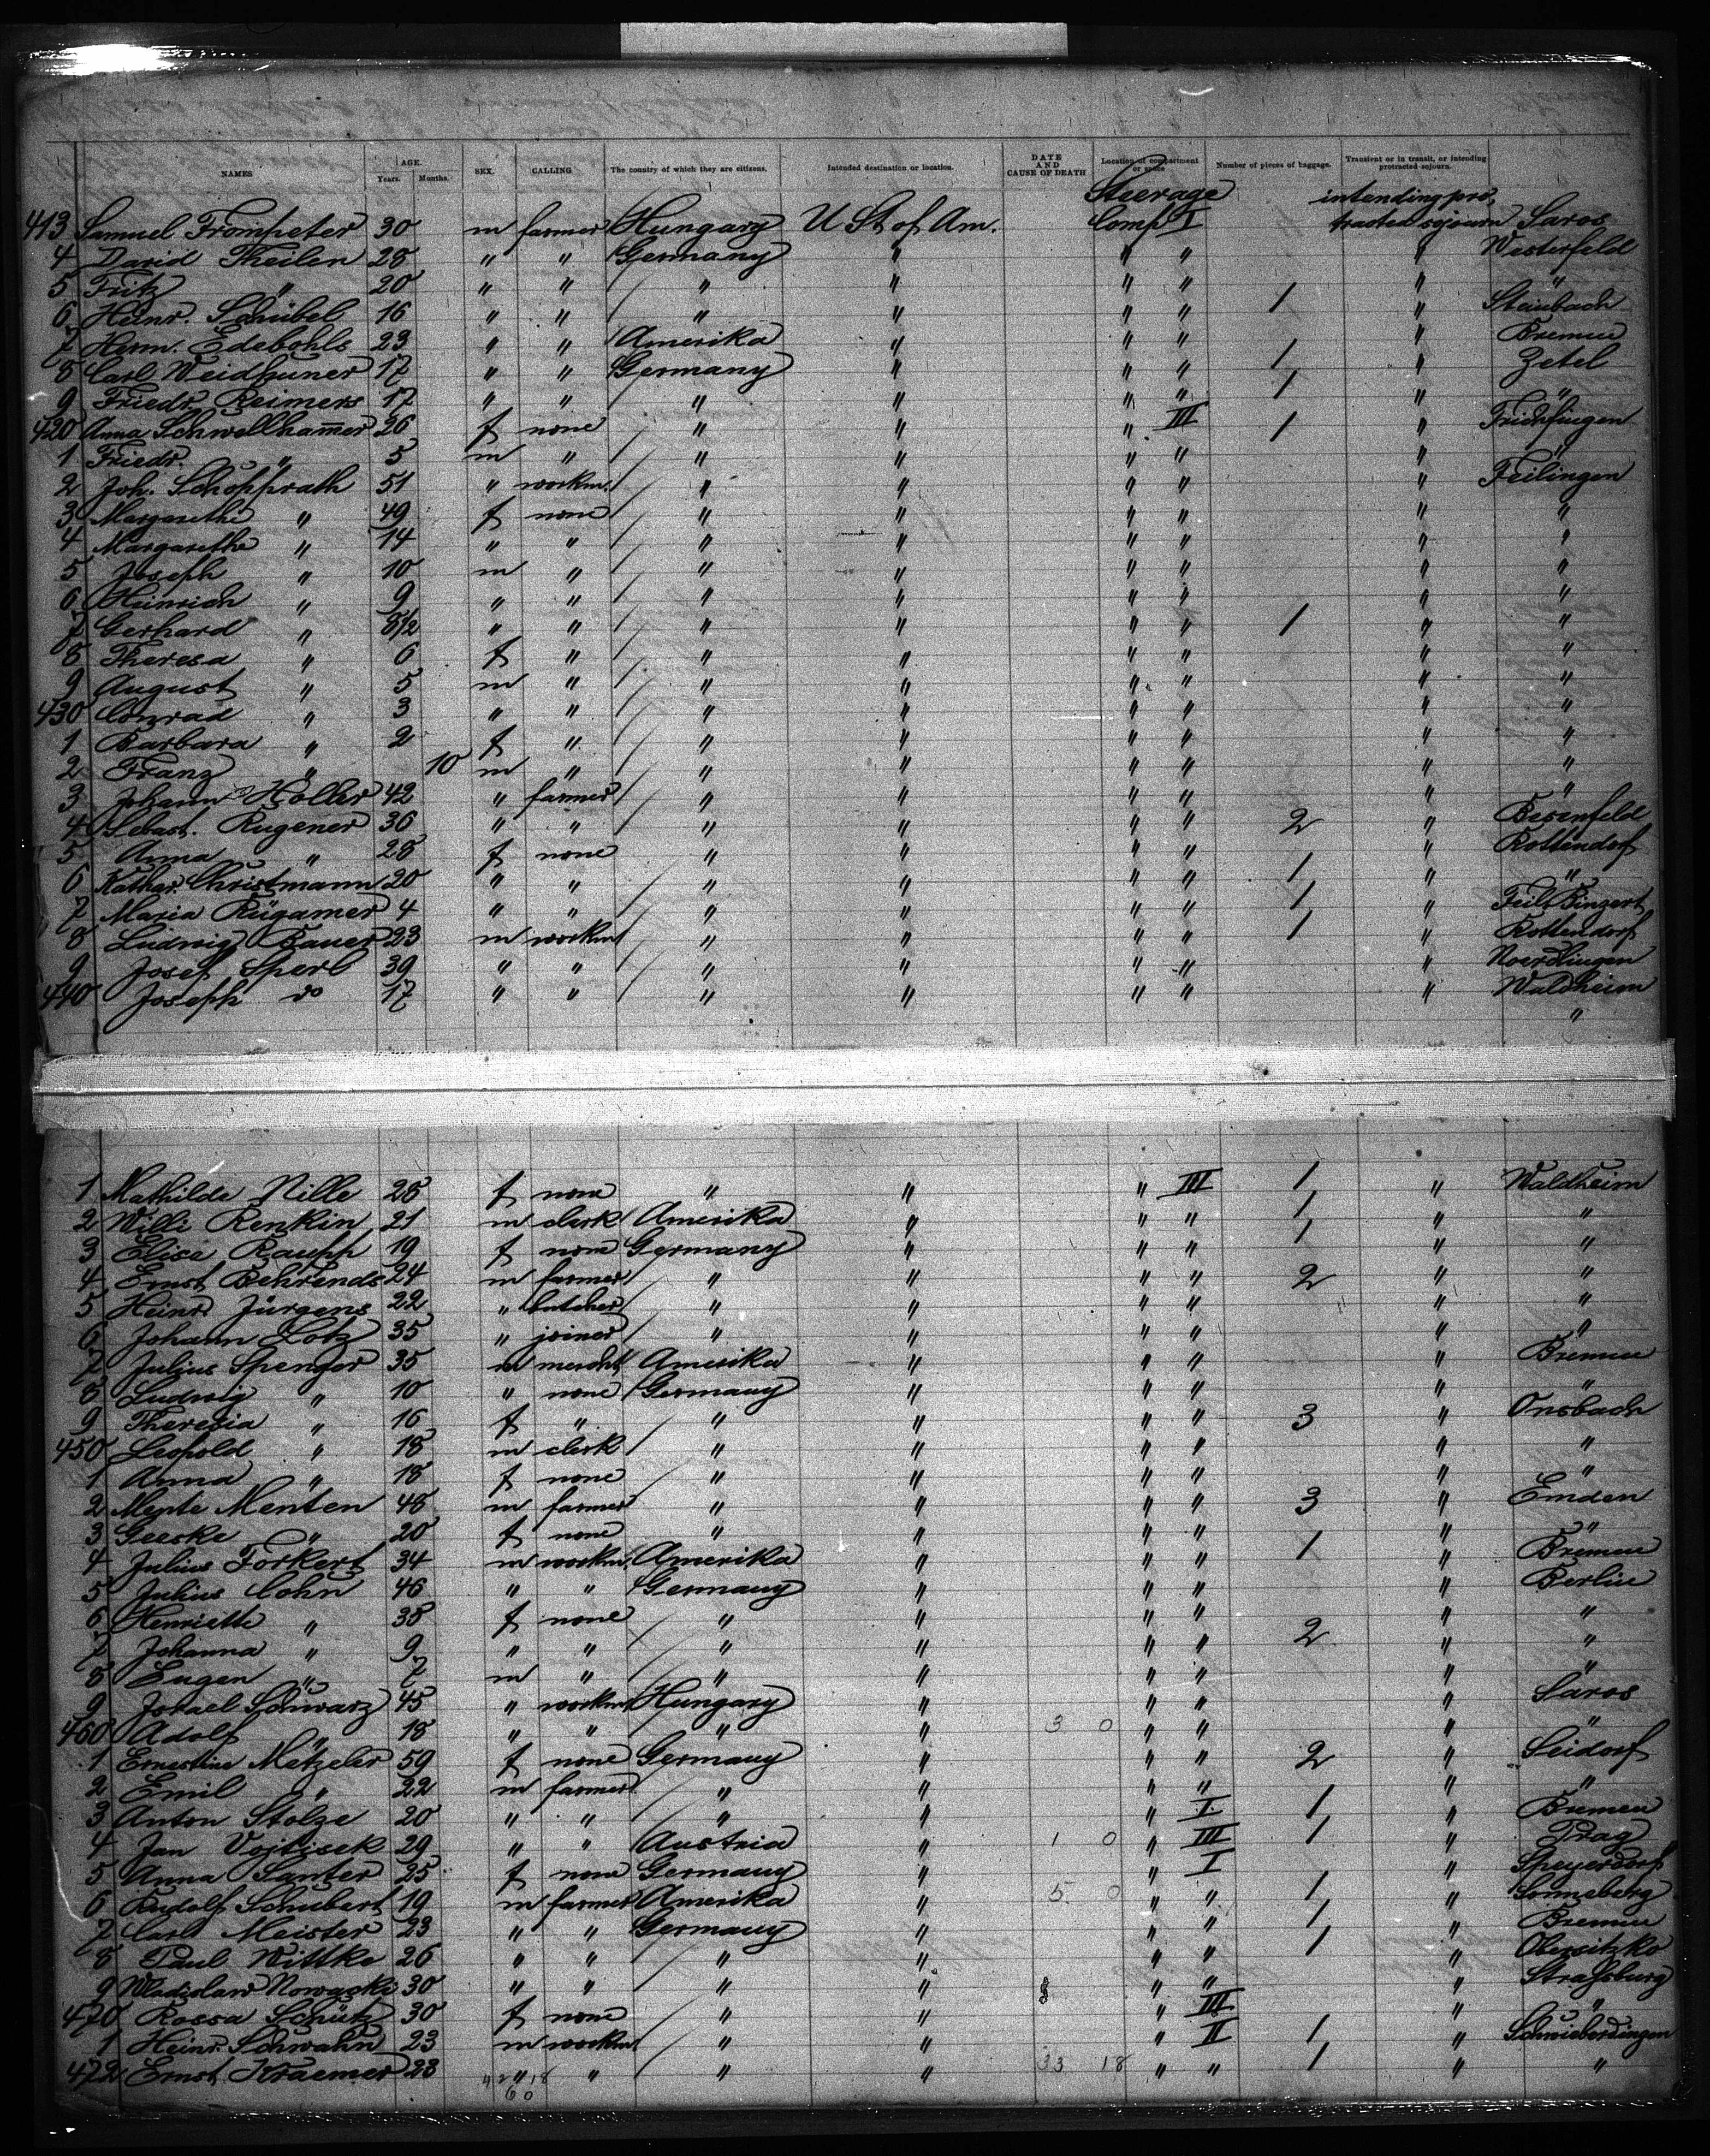 NAMES AGE. Years. Months. SEX. CALLING The country of which they are citizens. Intended destination or location. DATE AND CAUSE OF DEATH Location of compartment or space Number of pieces of baggage. Transient or in transit, or intending protracted sojourn.
Steerage intending pro,
413 Samuel Trompeter 30 m farmer Hungary U St of Am. Comp I tracted sojourn Saros
4 David Theilen 28 " " Germany " " " " Westerfeld
5 Fritz " 20 " " " " " " " "
6 Heinr. Schübel 16 " " " " " " 1 " Steinbach
7 Herm. Edebohls 23 " " Amerika " " " " Bremen
8 Carl Weidhuner 17 " " Germany " " " 1 " Zetel
9 Friedr. Reimers 17 " " " " " " 1 " "
420 Anna Schwellham̅er 26 f none " " " III 1 "
1 Friedr. " 5 m " " " " " " "
2 Joh. Schopprath 51 " workm. " " " " " Feilingen
3 Margarethe " 49 f none " " " " " "
4 Margarethe " 14 " " " " " " " "
5 Joseph " 10 m " " " " " " "
6 Heinrich " 9 " " " " " " " "
7 Gerhard " 8½ " " " " " " 1 " "
8 Theresa " 6 f " " " " " " "
9 August " 5 m " " " " " " "
430 Conrad " 3 " " " " " " " "
1 Barbara " 2 f " " " " " " "
2 Franz " 10 m " " " " " " "
3 Johann Holler 42 " farmer " " " " " "
4 Sebast. Rugener 36 " " " " " " 2 " Besenfeld
5 Anna " 28 f none " " " " " Rottendorf
6 Kathar. Christmann 20 " " " " " " 1 " "
7 Maria Rügamer 4 " " " " " " 1 " Feil Binzert
8 Ludwig Bauer 23 m workm " " " " 1 " Rottendorf
9 Josef Sperl 39 " " " " " " " Noerdlingen
440 Joseph do 17 " " " " " " " Waldheim
"
1 Mathilde Nille 28 f none " " " III 1 " Waldheim
2 Willi Renkin 21 m clerk Amerika " " " 1 " "
3 Elise Raupp 19 f none Germany " " " 1 " "
4 Ernst Behrends 24 m farmer " " " " 2 " "
5 Heinr. Jürgens 22 " butcher " " " " " "
6 Johann Lotz 35 " joiner " " " " " "
7 Julius Spengler 35 m mercht Amerika " " " " Bremen
8 Ludwig " 10 " none Germany " " " " "
9 Theresia " 16 f " " " " " 3 " Onsbach
450 Leopold " 18 m clerk " " " " " "
1 Anna " 18 f none " " " " " "
2 Mente Menten 48 m farmer " " " " 3 " Emden
3 Geeske " 20 f none " " " " " "
4 Julius Forkert 34 m workm. Amerika " " " 1 " Bremen
5 Julius Cohn 46 " " Germany " " " " Berlin
6 Henriette " 38 f none " " " " " "
7 Johanna " 9 " " " " " " 2 " "
8 Eugen " 7 m " " " " " " "
9 Israel Schwarz 45 " workm Hungary " " " " Saros
460 Adolf " 18 " " " " 3 0 " " " "
1 Ernestine Metzeler 59 f none Germany " " " 2 " Seidorf
2 Emil " 22 m farmer " " " " " "
3 Anton Stolze 20 " " " " " I. 1 " Bremen
4 Jan Vojtisek 29 " " Austria " 1 0 " III 1 " Prag
5 Anna Santer 25 f none Germany " " I " Speyerdorf
6 Rudolf Schubert 19 m farmer Amerika " 5 0 " " 1 " Sonneberg
7 Carl Meister 23 " " Germany " " " 1 " Bremen
8 Paul Wittke 26 " " " " " " 1 " Obersitzko
9 Wladislaw Nowacki 30 " " " " " " " Straßburg
470 Rossa Schütz 30 f none " " " III " "
1 Heinr. Schwahn 23 m workm " " " II 1 " Schwieberdingen
472 Ernst Kraemer 23 " " " " 33 18 " " 1 " "
42 18
60